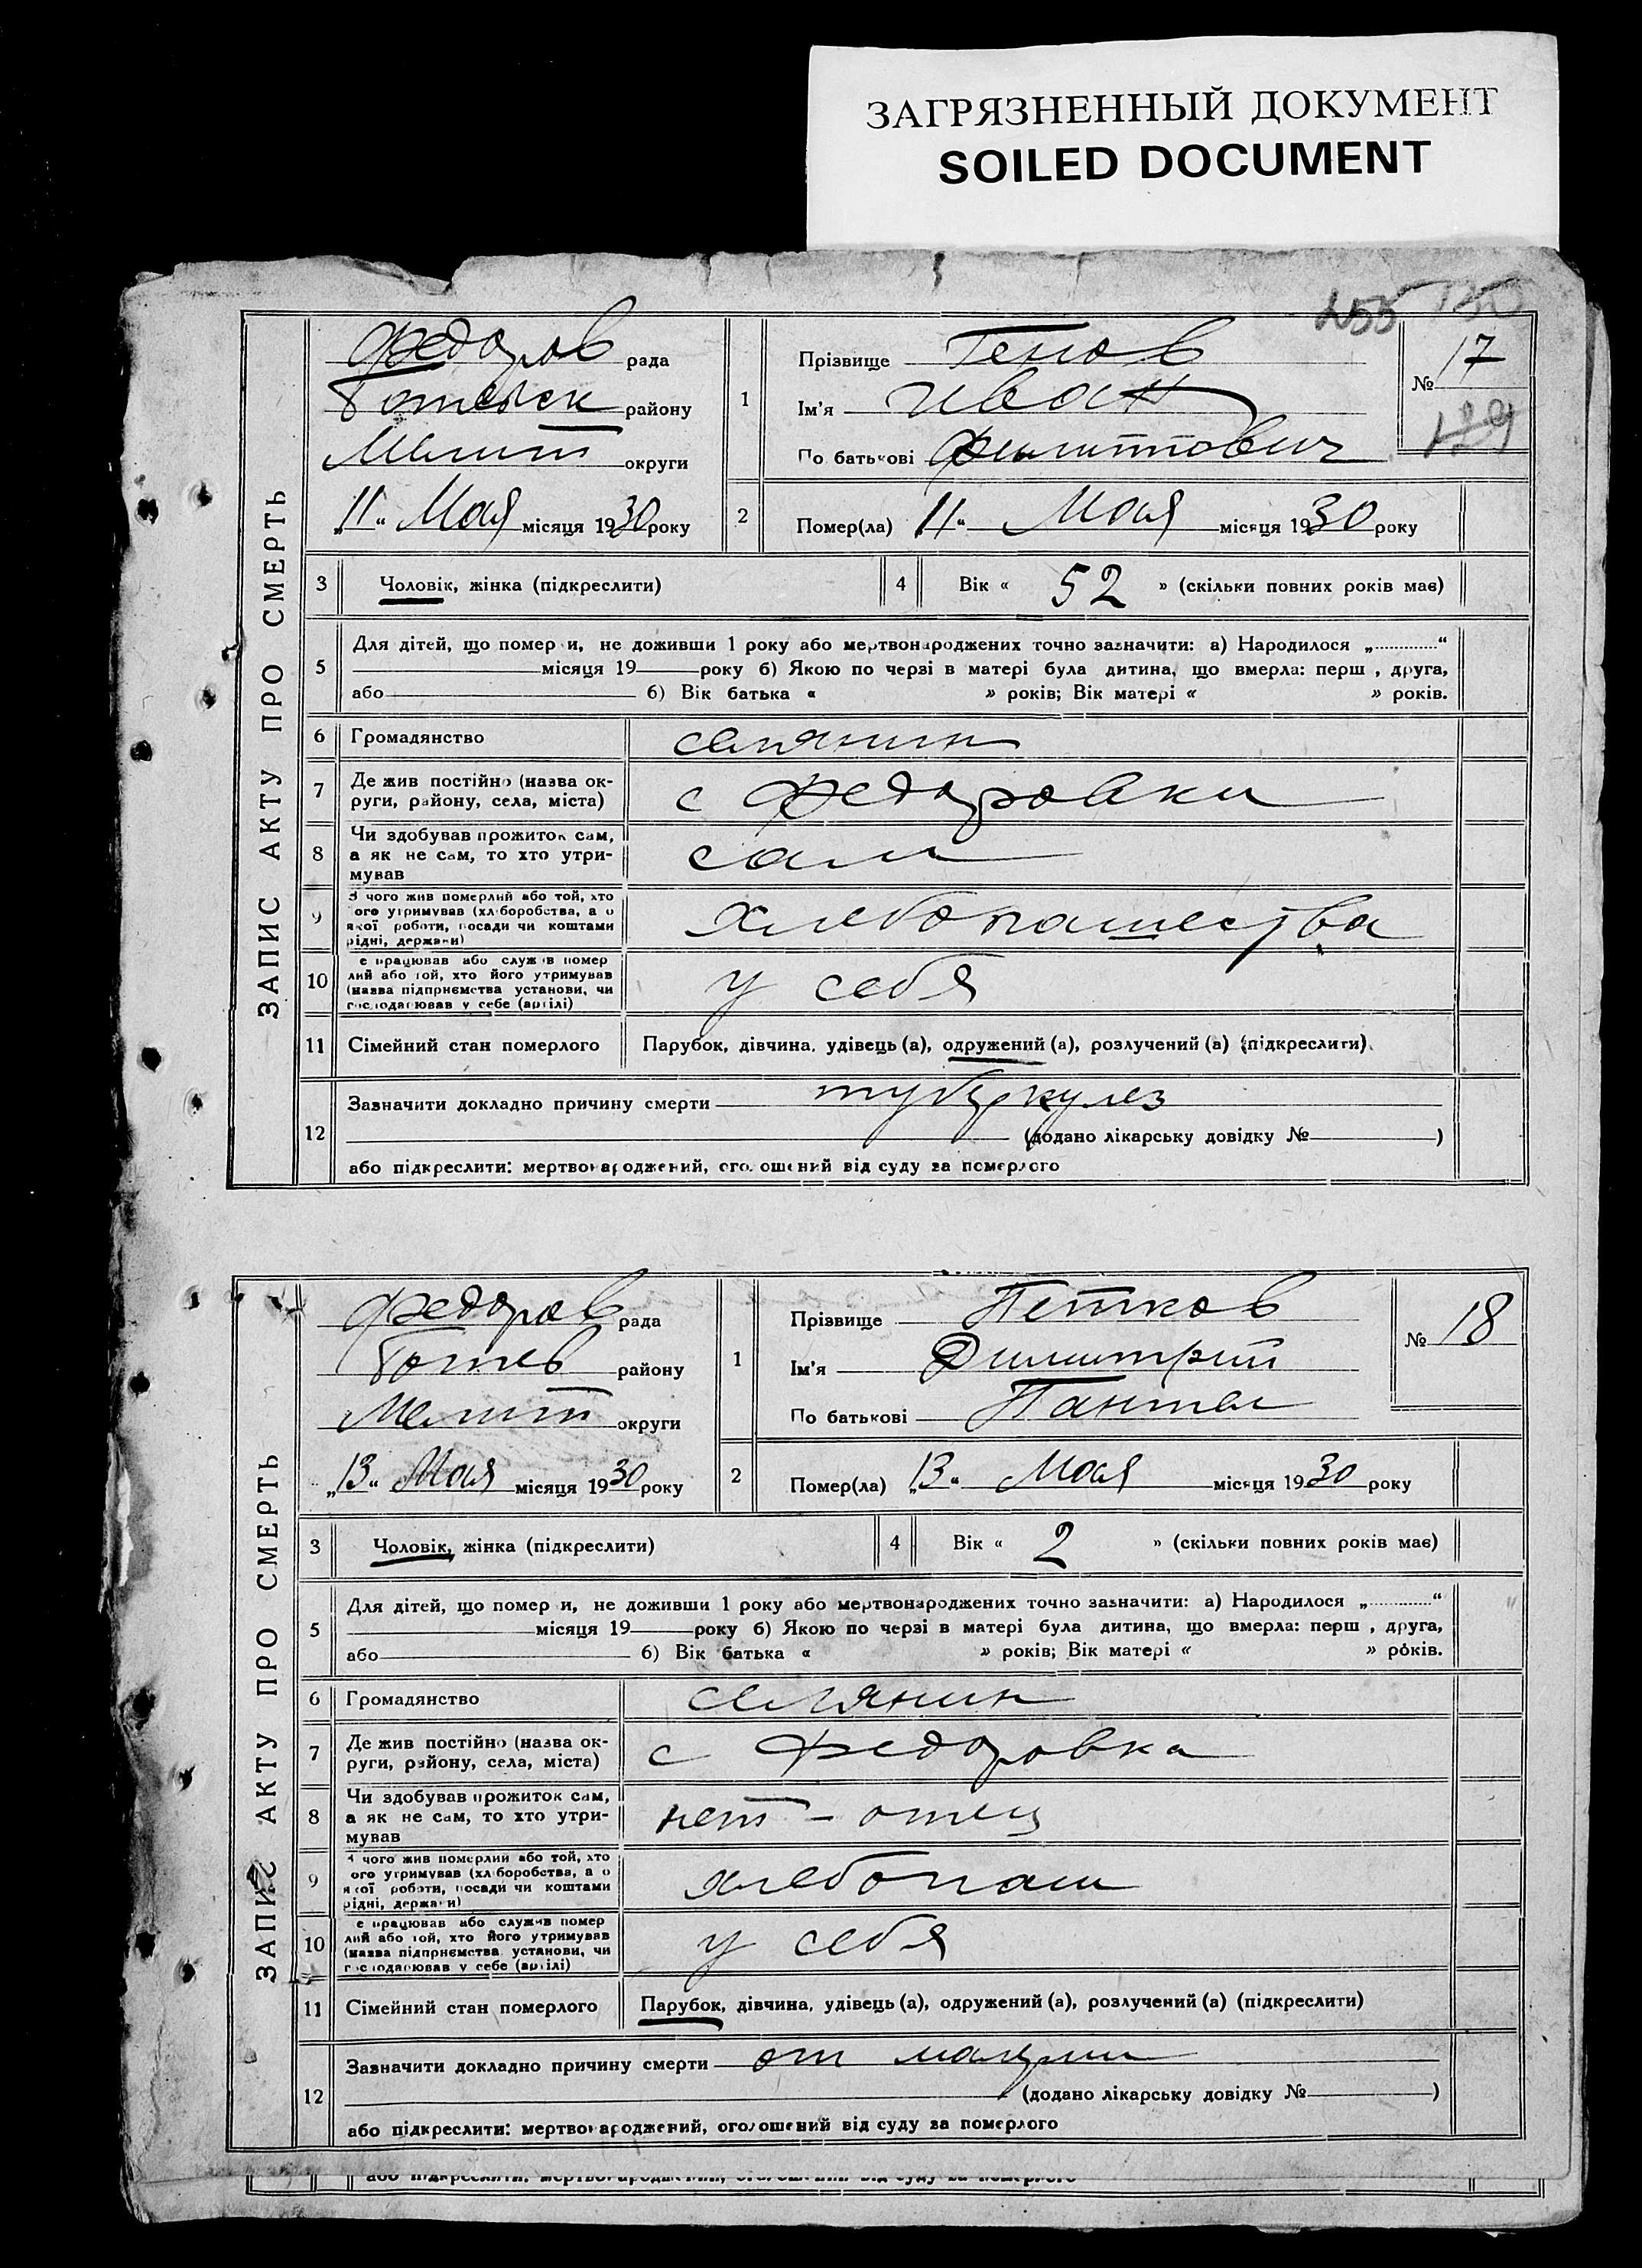 ЗАГРЯЗНЕННЫЙ ДОКУМЕНТ
SOILED DOCUMENT
255
ЗАПИС АКТУ ПРО СМЕРТЬ
Федоров рада
Ботевск району
Мелит округи
„11“ Мая місяця 1930 року
1
Прізвище Генов
Ім'я Иван
По батькові Филиппович
№ 17
129
2
Помер(ла) 11“ Мая місяця 1930 року
3 Чоловік, жінка (підкреслити)
4 Вік « 52 » (скільки повних років має)
5 Для дітей, що помер и, не доживши 1 року або мертвонароджених точно зазначити: а) Народилося „..............“
місяця 19 року б) Якою по черзі в матері була дитина, що вмерла: перш , друга,
або б) Вік батька « » років; Вік матері « » років.
6 Громадянство селянин
7 Де жив постійно (назва ок-
руги, району, села, міста) с Федоровки
8 Чи здобував прожиток сам,
а як не сам, то хто утри-
мував сам
9 З чого жив померлий або той, хто
ого утримував (хл боробства, а о
якої роботи, посади чи коштами
рідні, держави) хлебопашества
10 е працював або служ в помер
лий або той, хто його утримував
(назва підприємства установи, чи
господарював у себе (артілі) у себя
11 Сімейний стан померлого Парубок, дівчина, удівець (а), одружений (а), розлучений (а) (підкреслити).
12 Зазначити докладно причину смерти туберкулез
(додано лікарську довідку № )
або підкреслити: мертвонароджений, оголошений від суду за померлого
ЗАПИС АКТУ ПРО СМЕРТЬ
Федоров рада
Ботев району
Мелит округи
„13“ Мая місяця 1930 року
1
Прізвище Петков
Ім'я Димитрий
По батькові Пантел
№ 18
2
Помер(ла) „13“ Мая місяця 1930 року
3 Чоловік, жінка (підкреслити)
4 Вік « 2 » (скільки повних років має)
5 Для дітей, що помер и, не доживши 1 року або мертвонароджених точно зазначити: а) Народилося „..............“
місяця 19 року б) Якою по черзі в матері була дитина, що вмерла: перш , друга,
або б) Вік батька « » років; Вік матері « » років.
6 Громадянство селянин
7 Де жив постійно (назва ок-
руги, району, села, міста) с Федоровка
8 Чи здобував прожиток сам,
а як не сам, то хто утри-
мував нет – отец
9 З чого жив померлий або той, хто
ого утримував (хл боробства, а о
якої роботи, посади чи коштами
рідні, держави) хлебопаш
10 е працював або служив помер
лий або той, хто його утримував
(назва підприємства установи, чи
господарював у себе (артілі) у себя
11 Сімейний стан померлого Парубок, дівчина, удівець (а), одружений (а), розлучений (а) (підкреслити)
12 Зазначити докладно причину смерти от
(додано лікарську довідку № )
або підкреслити: мертвонароджений, оголошений від суду за померлого
або підкреслити: мертвонароджений, оголошений від суду за померлого